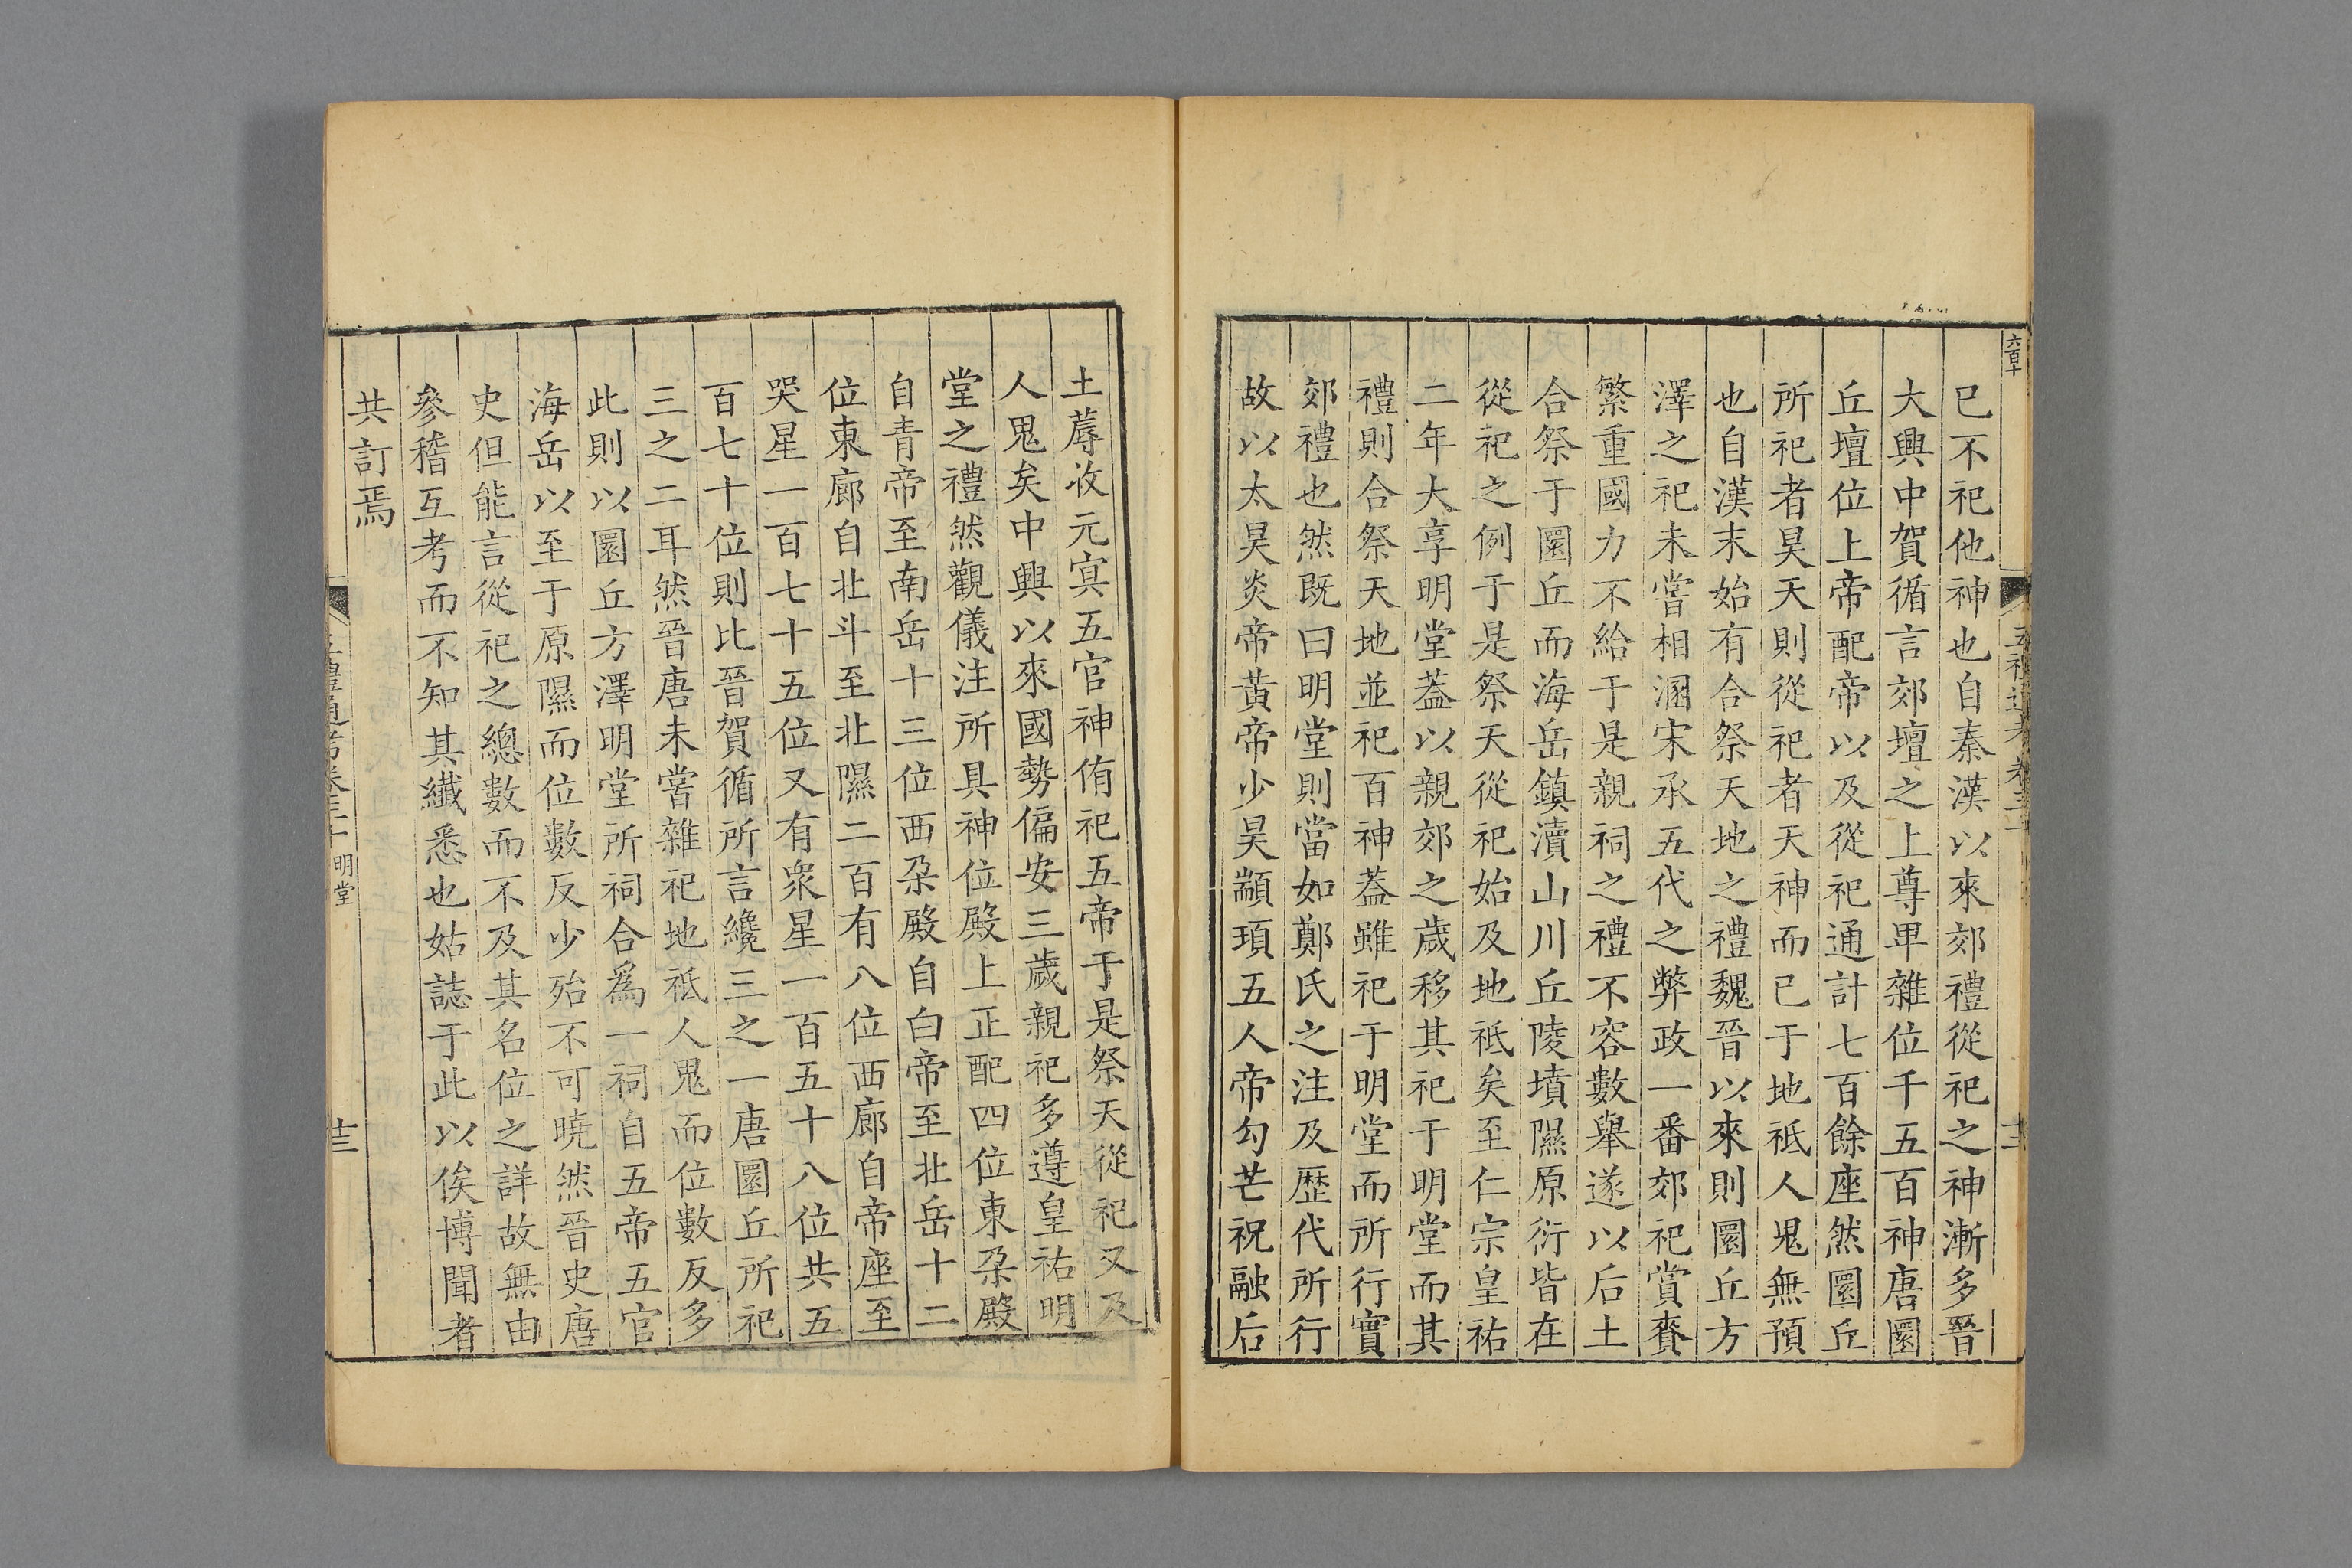 六百十
巳不祀他神也自秦漢以來郊禮從祀之神漸多晉
大興中賀循言郊壇之上尊卑雜位千五百神唐圜
丘壇位上帝配帝以及從祀通計七百餘座然圜丘
所祀者昊天則從祀者天神而已于地祗人鬼無預
也自漢末始有合祭天地之禮魏晉以來則圜丘方
澤之祀未嘗相溷宋承五代之弊政一番郊祀賞賚
繁重國力不給于是親祠之禮不容數舉遂以后土
合祭于圜丘而海岳鎮瀆山川丘陵墳隰原衍皆在
從祀之例于是祭天從祀始及地祗矣至仁宗皇祐
二年大享明堂蓋以親郊之歲移其祀于明堂而其
禮則合祭天地並祀百神蓋雖祀于明堂而所行實
郊禮也然既曰明堂則當如鄭氏之注及歷代所行
故以太昊炎帝黃帝少昊顓頊五人帝勾芒祝融后
土蓐收元冥五官神侑祀五帝于是祭天從祀又及
人鬼矣中興以來國勢偏安三歲親祀多遵皇祐明
堂之禮然觀儀注所具神位殿上正配四位東朶殿
自青帝至南岳十三位西朶殿自白帝至北岳十二
位東廊自北斗至北隰二百有八位西廊自帝座至
哭星一百七十五位又有衆星一百五十八位共五
百七十位則比晉賀循所言纔三之一唐圜丘所祀
三之二耳然晉唐未嘗雜祀地祗人鬼而位數反多
此則以圜丘方澤明堂所祠合爲一祠自五帝五官
海岳以至于原隰而位數反少殆不可曉然晉史唐
史但能言從祀之總數而不及其名位之詳故無由
參稽互考而不知其纎悉也姑誌于此以俟博聞者
共訂焉
五禮通考卷三十 明堂 十三